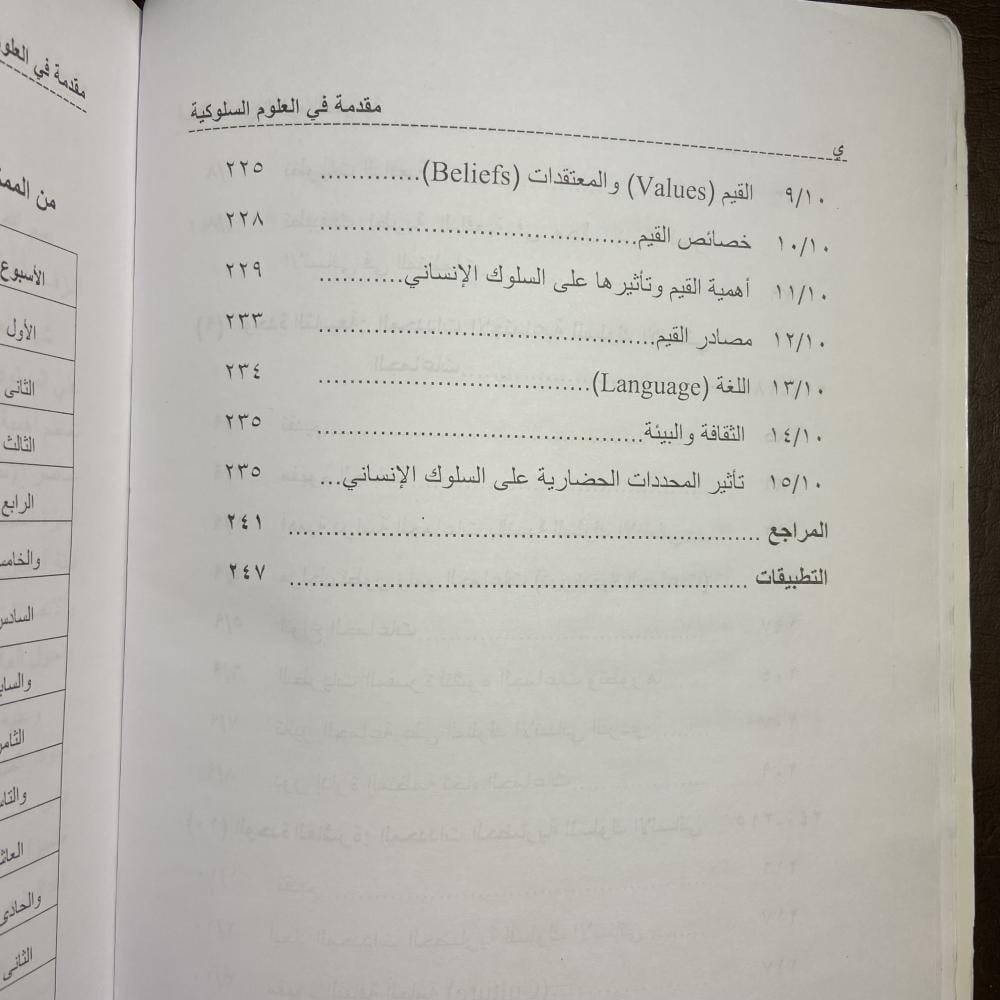 مقدمة في العلوم السلوكية
ي
٩/١٠ القيم (Values) والمعتقدات (Beliefs)............. ٢٢٥
١٠/١٠ خصائص القيم....................................... ٢٢٨
١١/١٠ أهمية القيم وتأثيرها على السلوك الإنساني........... ٢٢٩
١٢/١٠ مصادر القيم......................................... ٢٣٣
١٣/١٠ اللغة (Language).................................. ٢٣٤
١٤/١٠ الثقافة والبيئة........................................ ٢٣٥
١٥/١٠ تأثير المحددات الحضارية على السلوك الإنساني... ٢٣٥
المراجع .......................................................... ٢٤١
التطبيقات ........................................................ ٢٤٧
مقدمة في
من
الأسبوع
الأول
الثانى
الثالث
الرابع
والخامس
السادس
الثامن
الثانى